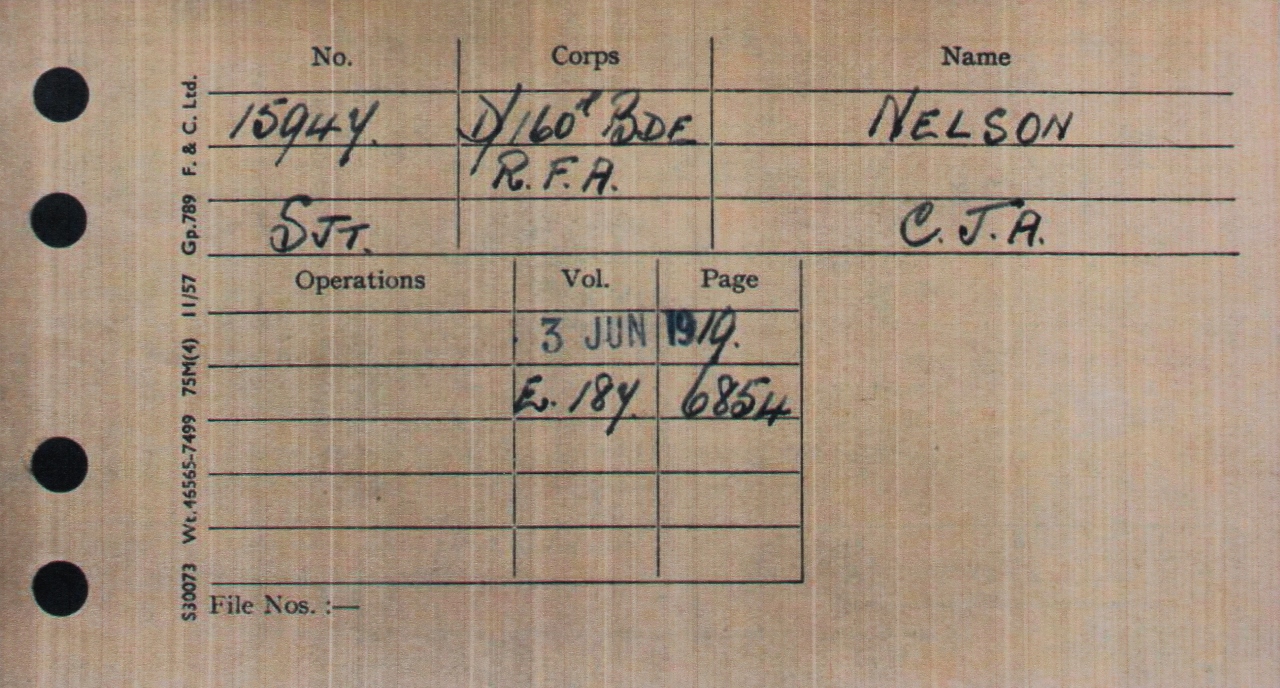 No. Corps Name
15947. D/160th BDE NELSON
R.F.A.
SJT. C. J. A.
Operations Vol. Page
3 JUN 1919.
E. 187. 6854
File Nos. :—
S30073 Wt.46565-7499 75M(4) 11/57 Gp.789 F. & C. Ltd.